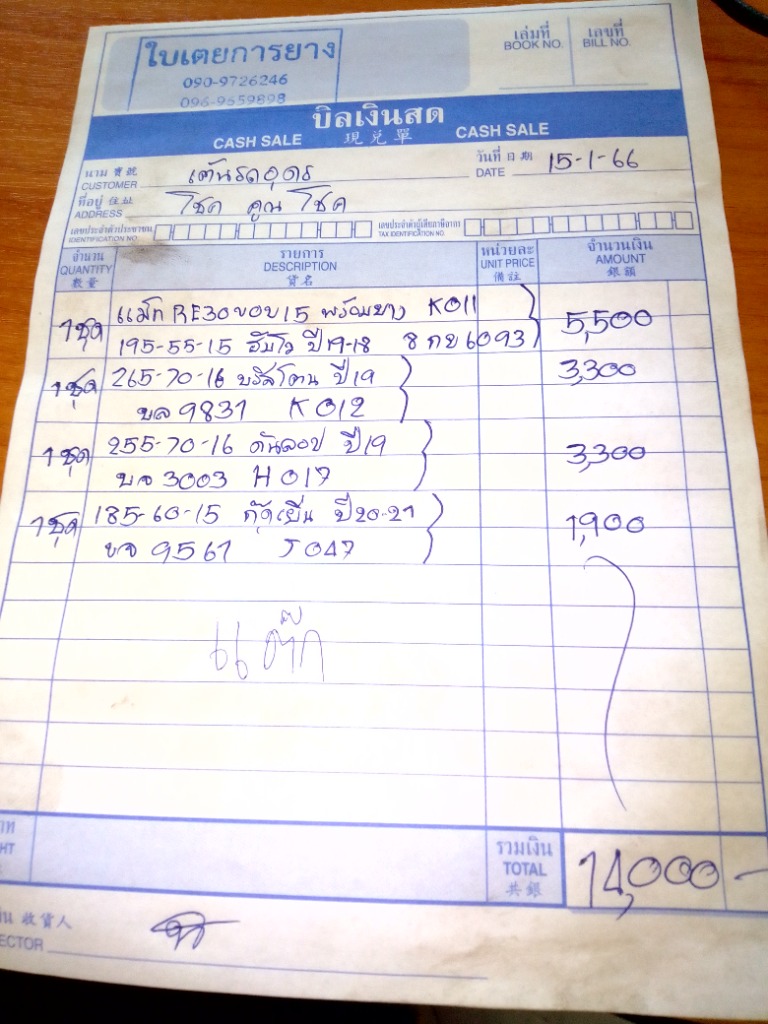 ใบเตยการยาง
090-9726246
096-9659898
เล่มที่ เลขที่
BOOK NO. BILL NO.
บิลเงินสด
CASH SALE 現兌單 CASH SALE
นาม 寶號 เต้นรถอุดร วันที่ 日期 15-1-66
CUSTOMER DATE
ที่อยู่ 住址 โชค คูณ โชค
ADDRESS
เลขประจำตัวประชาชน เลขประจำตัวผู้เสียภาษีอากร
IDENTIFICATION NO. TAX IDENTIFICATION NO.
จำนวน รายการ หน่วยละ จำนวนเงิน
QUANTITY DESCRIPTION UNIT PRICE AMOUNT
數量 貨名 備註 銀額
1ชุด แม็ก RE30 ขอบ 15 พร้อมยาง K011 5,500
195-55-15 ปี 19-18 8 กข 6093
1ชุด 265-70-16 ปี 19 3,300
บล 9831 K012
1ชุด 255-70-16 ดันลอป ปี 19 3,300
บจ 3003 H017
1ชุด 185-60-15 กู๊ดเยียน ปี 20-21 1,900
9561 J047
แต๊ก
รวมเงิน
TOTAL 14,000 -
共銀
收貨人
ECTOR